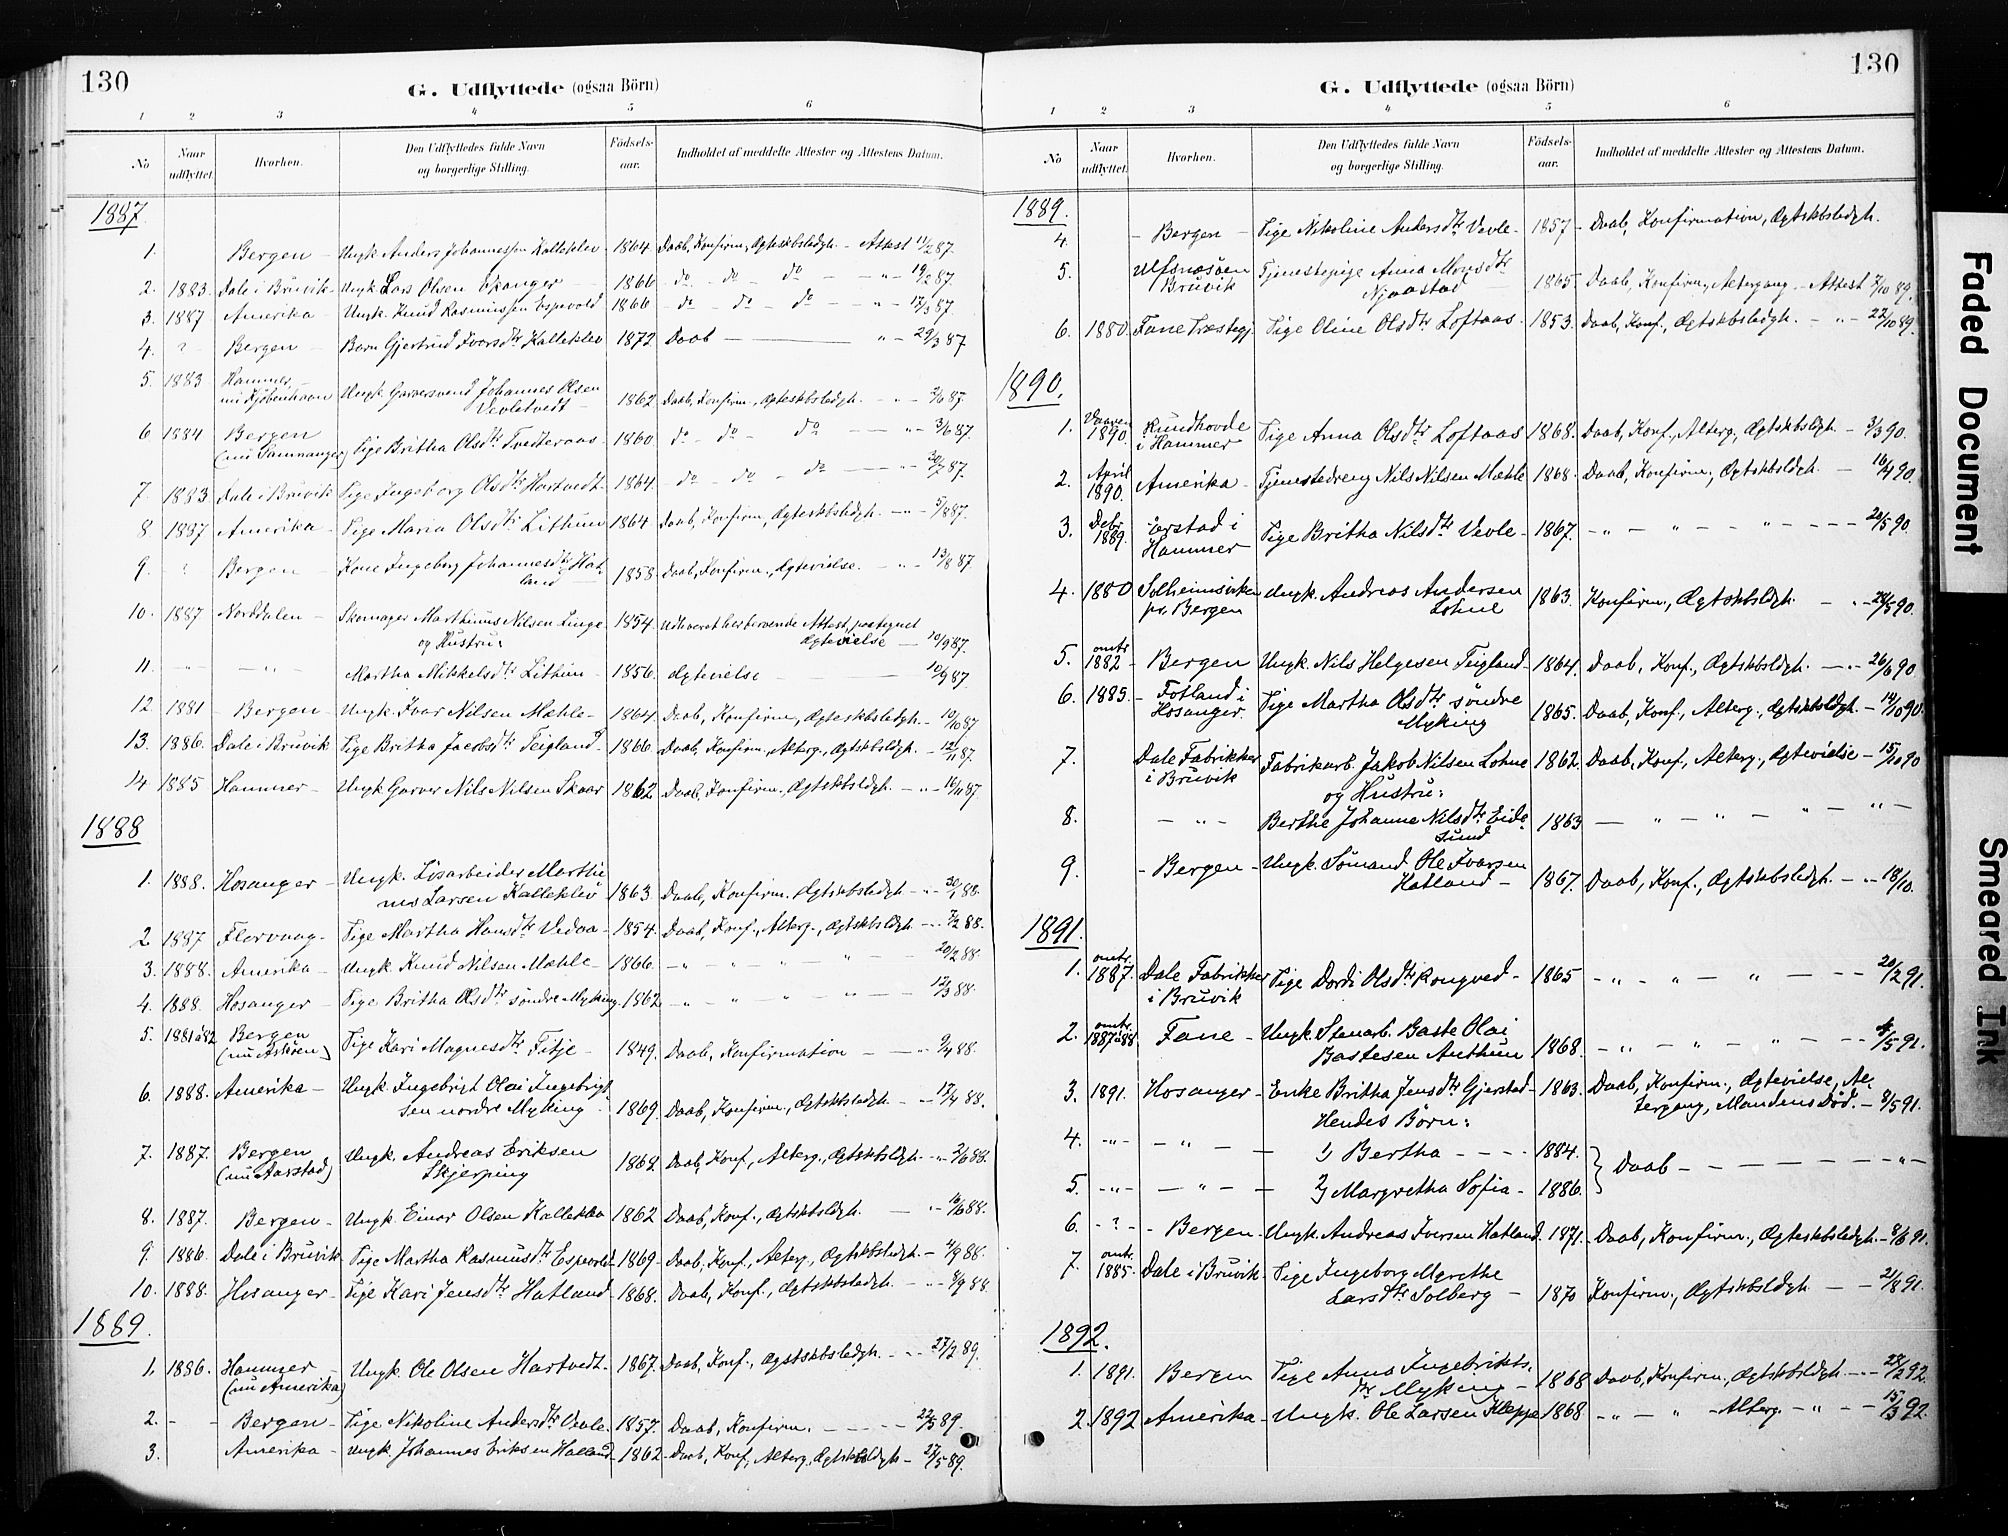 130
G. Udflyttede (ogsaa Börn)
1 2 3 4 5 6
No Naar udflyttet. Hvorhen. Den Udflyttedes fulde Navn og borgerlige Stilling. Födsels-aar. Indholdet af meddelte Attester og Attestens Datum.
1887.
1. Bergen - Ungk. Anders Johannessen Kalleklev - 1864 Daab, Konfirm., Ægteskbsledgh. - Attest 11/2 87.
2. 1883. Dale i Bruvik - Ungk. Lars Olsen Spanger 1866 do - do do - " - 19/2 87.
3. 1887 Amerika - Ungk. Knud Rasmussen Espevold 1866 - do - do - do - " - 17/3 87.
4. ? - Bergen - Barn Gjertrud Ivarsdtr Kalleklev 1872 Daab - " - 29/3 87
5. 1883 Hammer,
nu Kjøbenhavn Ungk. Garversvend Johannes Olsen
Vevletvedt - 1862 Daab, Konfirm., Ægteskbsledgh. - " - 3/6 87.
6 1884 Bergen
(nu Samnanger) Pige Britha Olsdtr Tvedteraas - 1860. do - do - do - " - 3/6 87.
7. 1883. Dale i Bruvik Pige Ingeborg Olsdtr Hartvedt. 1864. - do - do - do - " - 30/7 87.
8 1887 - Amerika - Pige Maria Olsdtr Lithun 1864 Daab, Konfirm, Ægteskbsledgh. - " - 5/8 87.
9. ? - Bergen - Kone Ingeborg Johannesdtr Hat-
land - 1858 Daab, Konfirm., Ægtevielse. - " - 13/8 87.
10. 1887 Norddalen - Skomager Marthinus Nilsen Linge
og Hustru: 1854. Udleveret herberoende Attest, paategnet
Ægtevielse - 10/9 87.
11. - " - - " - Martha Mikkelsdtr Lithun - 1856. Ægtevielse - 10/9 87.
12 1881 - Bergen - Ungk. Ivar Nilsen Mæhle - 1864. Daab, Konfirm, Ægteskbsledgh. - 10/10 87
13. 1886. Dale i Bruvik Pige Britha Jacobsdtr Teigland. 1866 Daab, Konfirm., Alterg., Ægtskbsldgh. - 12/11 87.
14 1885 Hammer - Ungk Garver Nils Nilsen Skaar 1862 Daab, Konfirm., Ægtskbsldgh. - " - 16/11 87.
1888
1. 1888. Hosanger - Ungk. Lösarbeider Marthi
nus Larsen Kalleklev 1863 Daab, Konfirm. Ægtskbsledgh - " - 30/1 88.
2 1887 Florvaag - Pige Martha Hansdtr Vedaa - 1854. Daab, Konf., Alterg., Ægtskbsldgh. - " - 7/2 88.
3. 1888. Amerika - Ungk. Knud Nilsen Mæhle - 1866. - " - " - " - " - 20/2 88.
4. 1888. Hosanger - Pige Britha Olsdtr söndre Myking. 1862 - " - " - " - " - 12/3 88.
5. 1881 à 82 Bergen
(nu Asköen) Pige Kari Magnesdtr Fitje - 1849. Daab, Konfirmation - " - 9/4 88.
6. 1888. Amerika - Ungk. Ingebrigt Olai Ingebrigt
sen nordre Myking - 1869. Daab, Konfirm., Ægtskbsledgh. - " - 17/4 88.
7. 1887. Bergen
(nu Aarstad) Ungk. Andreas Eriksen
Skjerping 1862 Daab, Konf, Alterg., Ægtskbsldgh - " 2/6 88.
8. 1887. Bergen - Ungk. Einar Olsen Kalleklev 1862 Daab, Konf., Ægtskbsldgh. - " 16/6 88.
9. 1886. Dale i Bruvik - Pige Martha Rasmusdtr Espevold - 1869 - Daab, Konf., Alterg., Ægtskbsldgh. - 4/9 88.
10. 1888. Hosanger - Pige Kari Jensdtr Hatland - 1868. Daab, Konf., Ægtskbsledgh - " - 8/9 88
1889.
1. 1886. Hammer -
(nu Amerika) Ungk. Ole Olsen Hartvedt. 1867. Daab, Konf., Ægtskbsledgh. - " - 27/2 89.
2. - - Bergen - Pige Nikoline Andersdtr Vevle. 1857. Daab, Konfirm. - 22/5 89.
3. Amerika - Ungk. Johannes Eriksen Hatland - 1862 - Daab, Konf., Alterg., Ægtskbsldgh - 27/5 89.
130
G. Udflyttede (ogsaa Börn)
1 2 3 4 5 6
No Naar udflyttet. Hvorhen. Den Udflyttedes fulde Navn og borgerlige Stilling. Födsels-aar. Indholdet af meddelte Attester og Attestens Datum.
1889.
4. - Bergen - Pige Nikoline Andersdtr Vevle - 1857 - Daab, Konfirmation, Ægtskbsledgh.
5. Ulfsnæsöen
Bruvik Tjenestepige Anna Monsdtr
Njaastad - 1865. Daab, Konfirm., Altergang. - Attest 7/10 89.
6. 1880. Fane Præstegj. Pige Oline Olsdtr Loftaas - 1853. Daab, Konf., Ægtskbsledgh. - " - 22/10 89.
1890.
1. Vaaren
1890. Rundhovde
i Hammer Pige Anna Olsdtr Loftaas 1868. Daab, Konf., Alterg., Ægtskbsldgh - 3/3 90.
2. April
1890. Amerika - Tjenestedreng Nils Nilsen Mæhle 1868. Daab, Konfirm., Ægtskbsldgh. - 16/4 90.
3. Debr.
1889. Erstad i
Hammer Pige Britha Nilsdtr Vevle - 1867. - " - " - " - 20/5 90.
4. 1880 Solheimsviken
pr. Bergen Ungk. Andreas Andersen
Lohne 1863. Konfirm., Ægtskbsldgh. - " - 28/5 90.
5. omtr.
1882 - Bergen Ungk. Nils Helgesen Teigland - 1864. Daab, Konf., Ægtskbsldgh. - " - 26/6 90.
6. 1885. - Fotland i
Hosanger Pige Martha Olsdtr söndre
Myking 1865. Daab, Konf., Alterg., Ægtskbsldgh - 14/10 90.
7. Dale Fabrikker
i Bruvik Fabrikarb. Jakob Nilsen Lohne 1862. Daab, Konf., Alterg., Ægtevielse - 15/10 90
og Hustru:
8. - " - Berthe Johanne Nilsdtr Eide
sund 1863 - " - " - " - " -
9. - Bergen - Ungk. Sömand Ole Ivarsen
Hatland - 1867. Daab, Konf., Ægtskbsledgh. - " - 18/10.
1891.
1. omtr.
1887. Dale Fabrikker
i Bruvik Pige Dordi Olsdtr Rongved - 1865 - " - " - " - 20/2 91.
2. omtr.
1887 à 88 Fane - Ungk. Stenarb. Baste Olai
Bastesen Anthun 1868. - " - " - " - 4/5 91.
3. 1891. Hosanger - Enke Britha Jensdtr Gjerstad - 1863. Daab, Konfirm., Ægtevielse, Al-
tergang, Mandens Död. - 8/5 91.
Hendes Börn:
4. - " - - " - 1) Bertha - 1884.
} Daab - " -
5. - " - - " - 2) Margretha Sofia - 1886.
6. - ? - - Bergen Ungk. Andreas Iversen Hatland. 1871. Daab, Konfirm., Ægteskbsledgh. - 8/6 91.
7 omtr.
1885. Dale i Bruvik - Pige Ingeborg Merethe
Larsdtr Solberg - 1870 Konfirm., Ægtskbsldgh - 21/8 91.
1892.
1. 1891. Bergen Pige Anna Ingebrikts-
dtr Myking - 1868 Daab, Konfirm., Ægtskbsldgh. - " - 27/2 92.
2. 1892 Amerika - Ungk. Ole Larsen Kleppe 1868 - " - " - Alterg. - " - 15/3 92.
Faded Document
Smeared Ink